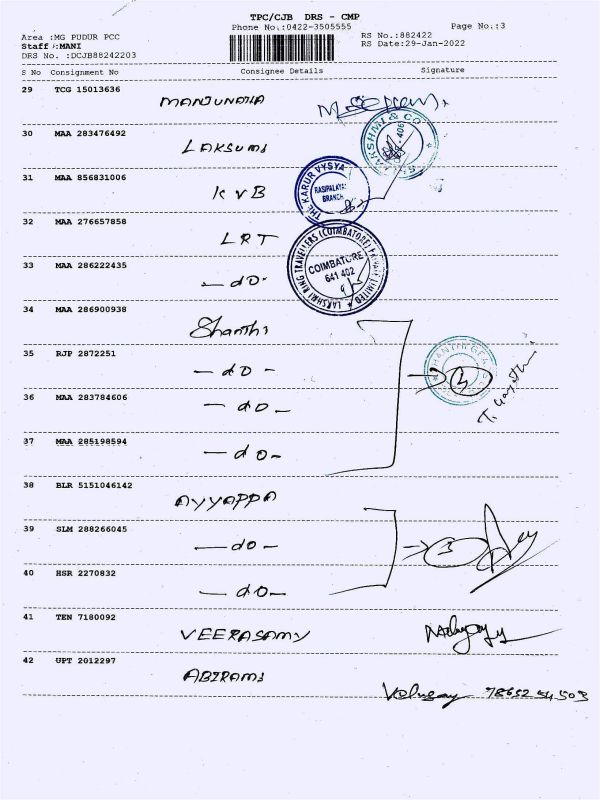 TPC/CJB DRS - CMP
Phone No.:0422-3505555 Page No.:3
Area :MG PUDUR PCC RS No.:882422
Staff :MANI RS Date:29-Jan-2022
DRS No. :DCJB88242203
S No Consignment No Consignee Details Signature
29 TCG 15013636 MANJUNATHA
30 MAA 283476492 LAKSUMI
LAKSHMI & CO
31 MAA 856831006 KVB
THE KARUR VYSYA
RASIPALAYAM
BRANCH
32 MAA 276657858 LRT
LAKSHMI RING TRAVELLERS (COIMBATORE) PRIVATE LIMITED
COIMBATORE
641 402
33 MAA 286222435 - do -
34 MAA 286900938 Shanthi
35 RJP 2872251 - do -
SHANTHI GEARS
3
36 MAA 283784606 - do -
37 MAA 285198594 - do -
38 BLR 5151046142 AYYAPPA
39 SLM 288266045 - do -
3
40 HSR 2270832 - do -
41 TEN 7180092 VEERASAMY
42 UPT 2012297 ABIRAMI